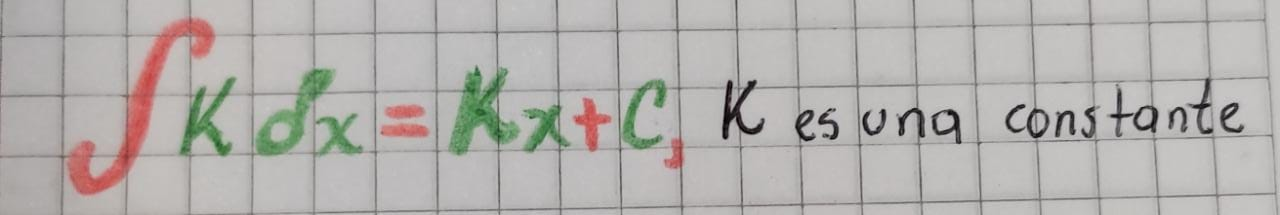 ∫K dx = Kx + C, K es una constante